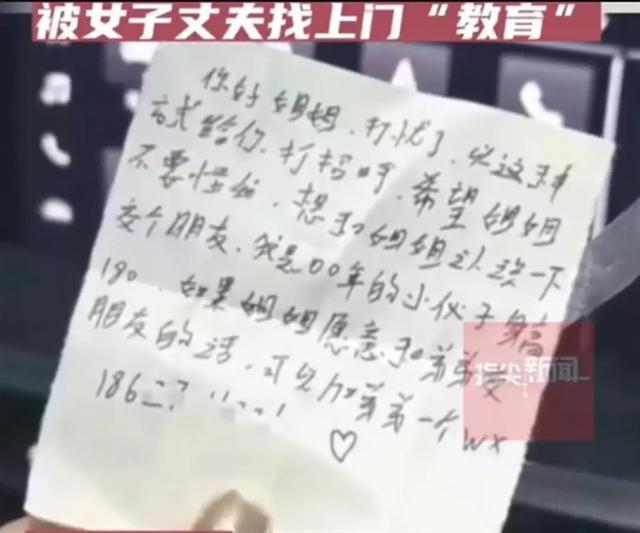 被女子丈夫找上门“教育”
你好姐姐,打忧了,以这种
方式给你打招呼,希望姐姐
不要怪佡,想和姐姐认识一下
交个朋友,我是00年的小伙子身高
180,如果姐姐愿意和弟弟交
朋友的话,可以加弟弟一个wx
186
♡
指尖新闻